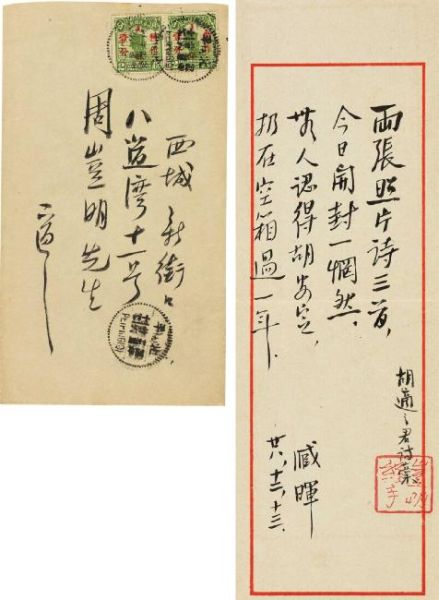 西城新街口
八道灣十一号
周豈明先生
PEIPING
兩張照片詩三首,
今日開封一惘然。
無人認得胡安定,
扔在空箱過一年。
臧暉
廿八、十二、十三、
胡適之君詩稿